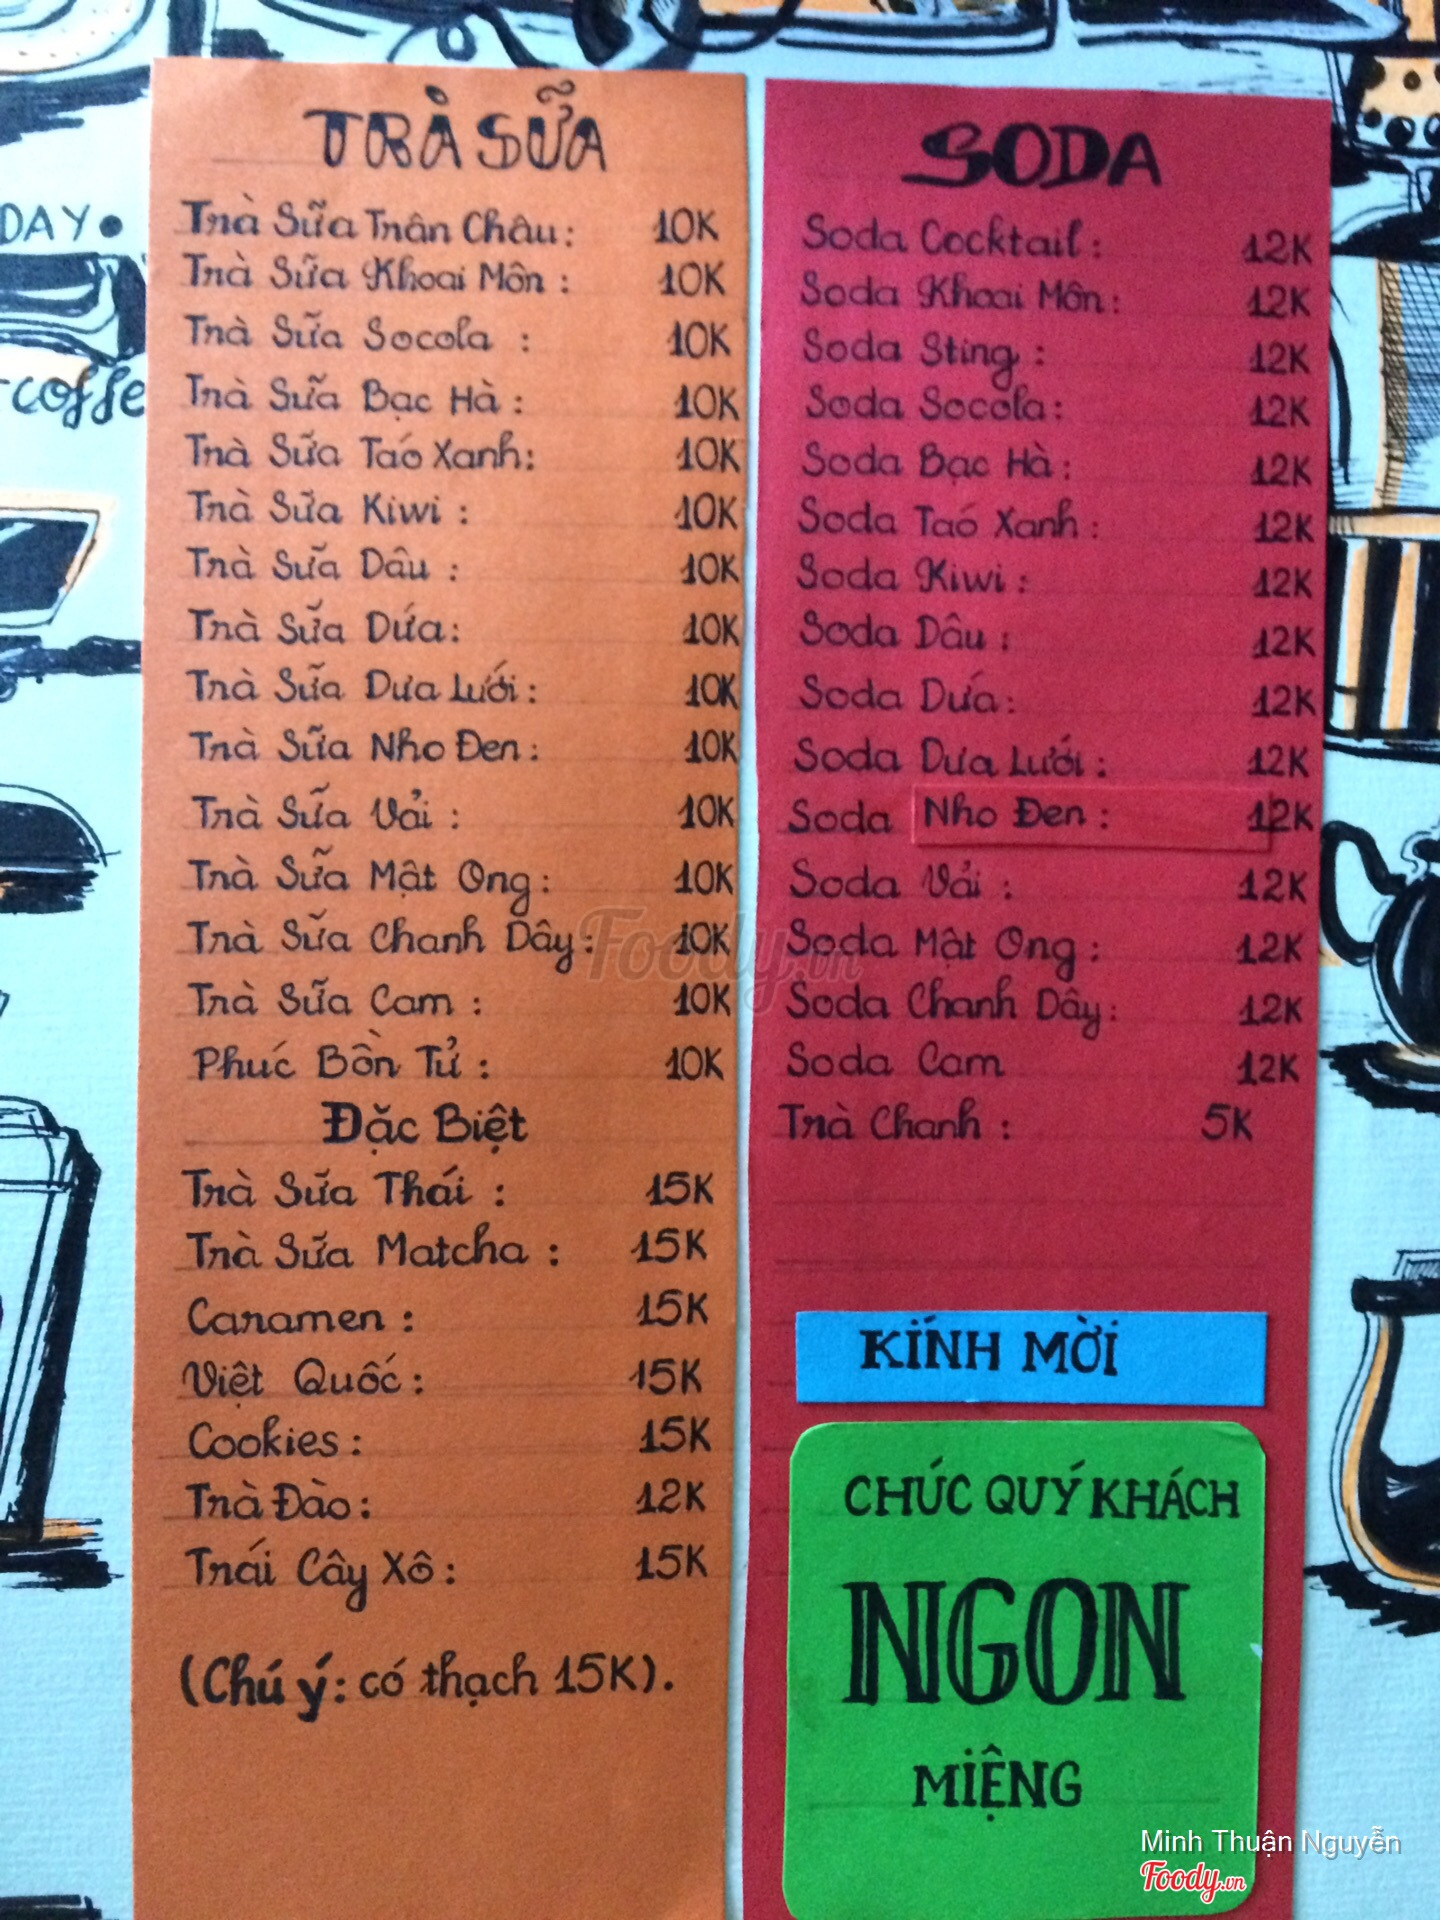 DAY
coffee
TRÀ SỮA
Trà Sữa Trân Châu: 10K
Trà Sữa Khoai Môn: 10K
Trà Sữa Socola : 10K
Trà Sữa Bạc Hà : 10K
Trà Sữa Táo Xanh: 10K
Trà Sữa Kiwi : 10K
Trà Sữa Dâu : 10K
Trà Sữa Dứa: 10K
Trà Sữa Dưa Lưới: 10K
Trà Sữa Nho Đen: 10K
Trà Sữa Vải : 10K
Trà Sữa Mật Ong: 10K
Trà Sữa Chanh Dây: 10K
Trà Sữa Cam : 10K
Phúc Bồn Tử : 10K
Đặc Biệt
Trà Sữa Thái : 15K
Trà Sữa Matcha : 15K
Caramen : 15K
Việt Quốc: 15K
Cookies: 15K
Trà Đào: 12K
Trái Cây Xô: 15K
(Chú ý: có thạch 15K).
SODA
Soda Cocktail : 12K
Soda Khoai Môn: 12K
Soda Sting : 12K
Soda Socola: 12K
Soda Bạc Hà: 12K
Soda Táo Xanh : 12K
Soda Kiwi : 12K
Soda Dâu : 12K
Soda Dứa: 12K
Soda Dưa Lưới : 12K
Soda Nho Đen : 12K
Soda Vải : 12K
Soda Mật Ong : 12K
Soda Chanh Dây: 12K
Soda Cam 12K
Trà Chanh : 5K
KÍNH MỜI
CHÚC QUÝ KHÁCH
NGON
MIỆNG
Foody.vn
Minh Thuận Nguyễn
Foody.vn